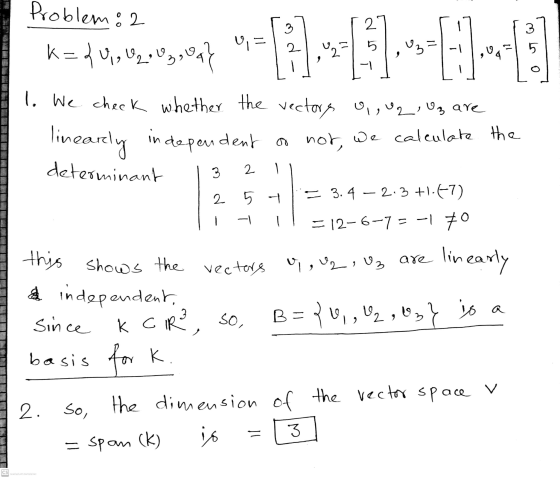 Problem : 2
K = { v₁, v₂, v₃, v₄ } v₁ = [3 2 1], v₂ = [2 5 -1], v₃ = [1 -1 1], v₄ = [3 5 0]
1. We check whether the vectors v₁, v₂, v₃ are
linearly independent or not, we calculate the
determinant | 3 2 1 |
| 2 5 -1 | = 3.4 - 2.3 + 1.(-7)
| 1 -1 1 | = 12 - 6 - 7 = -1 ≠ 0
this shows the vectors v₁, v₂, v₃ are linearly
independent.
Since K ⊂ ℝ³, so, B = { v₁, v₂, v₃ } is a
basis for K.
2. So, the dimension of the vector space V
= span (K) is = 3